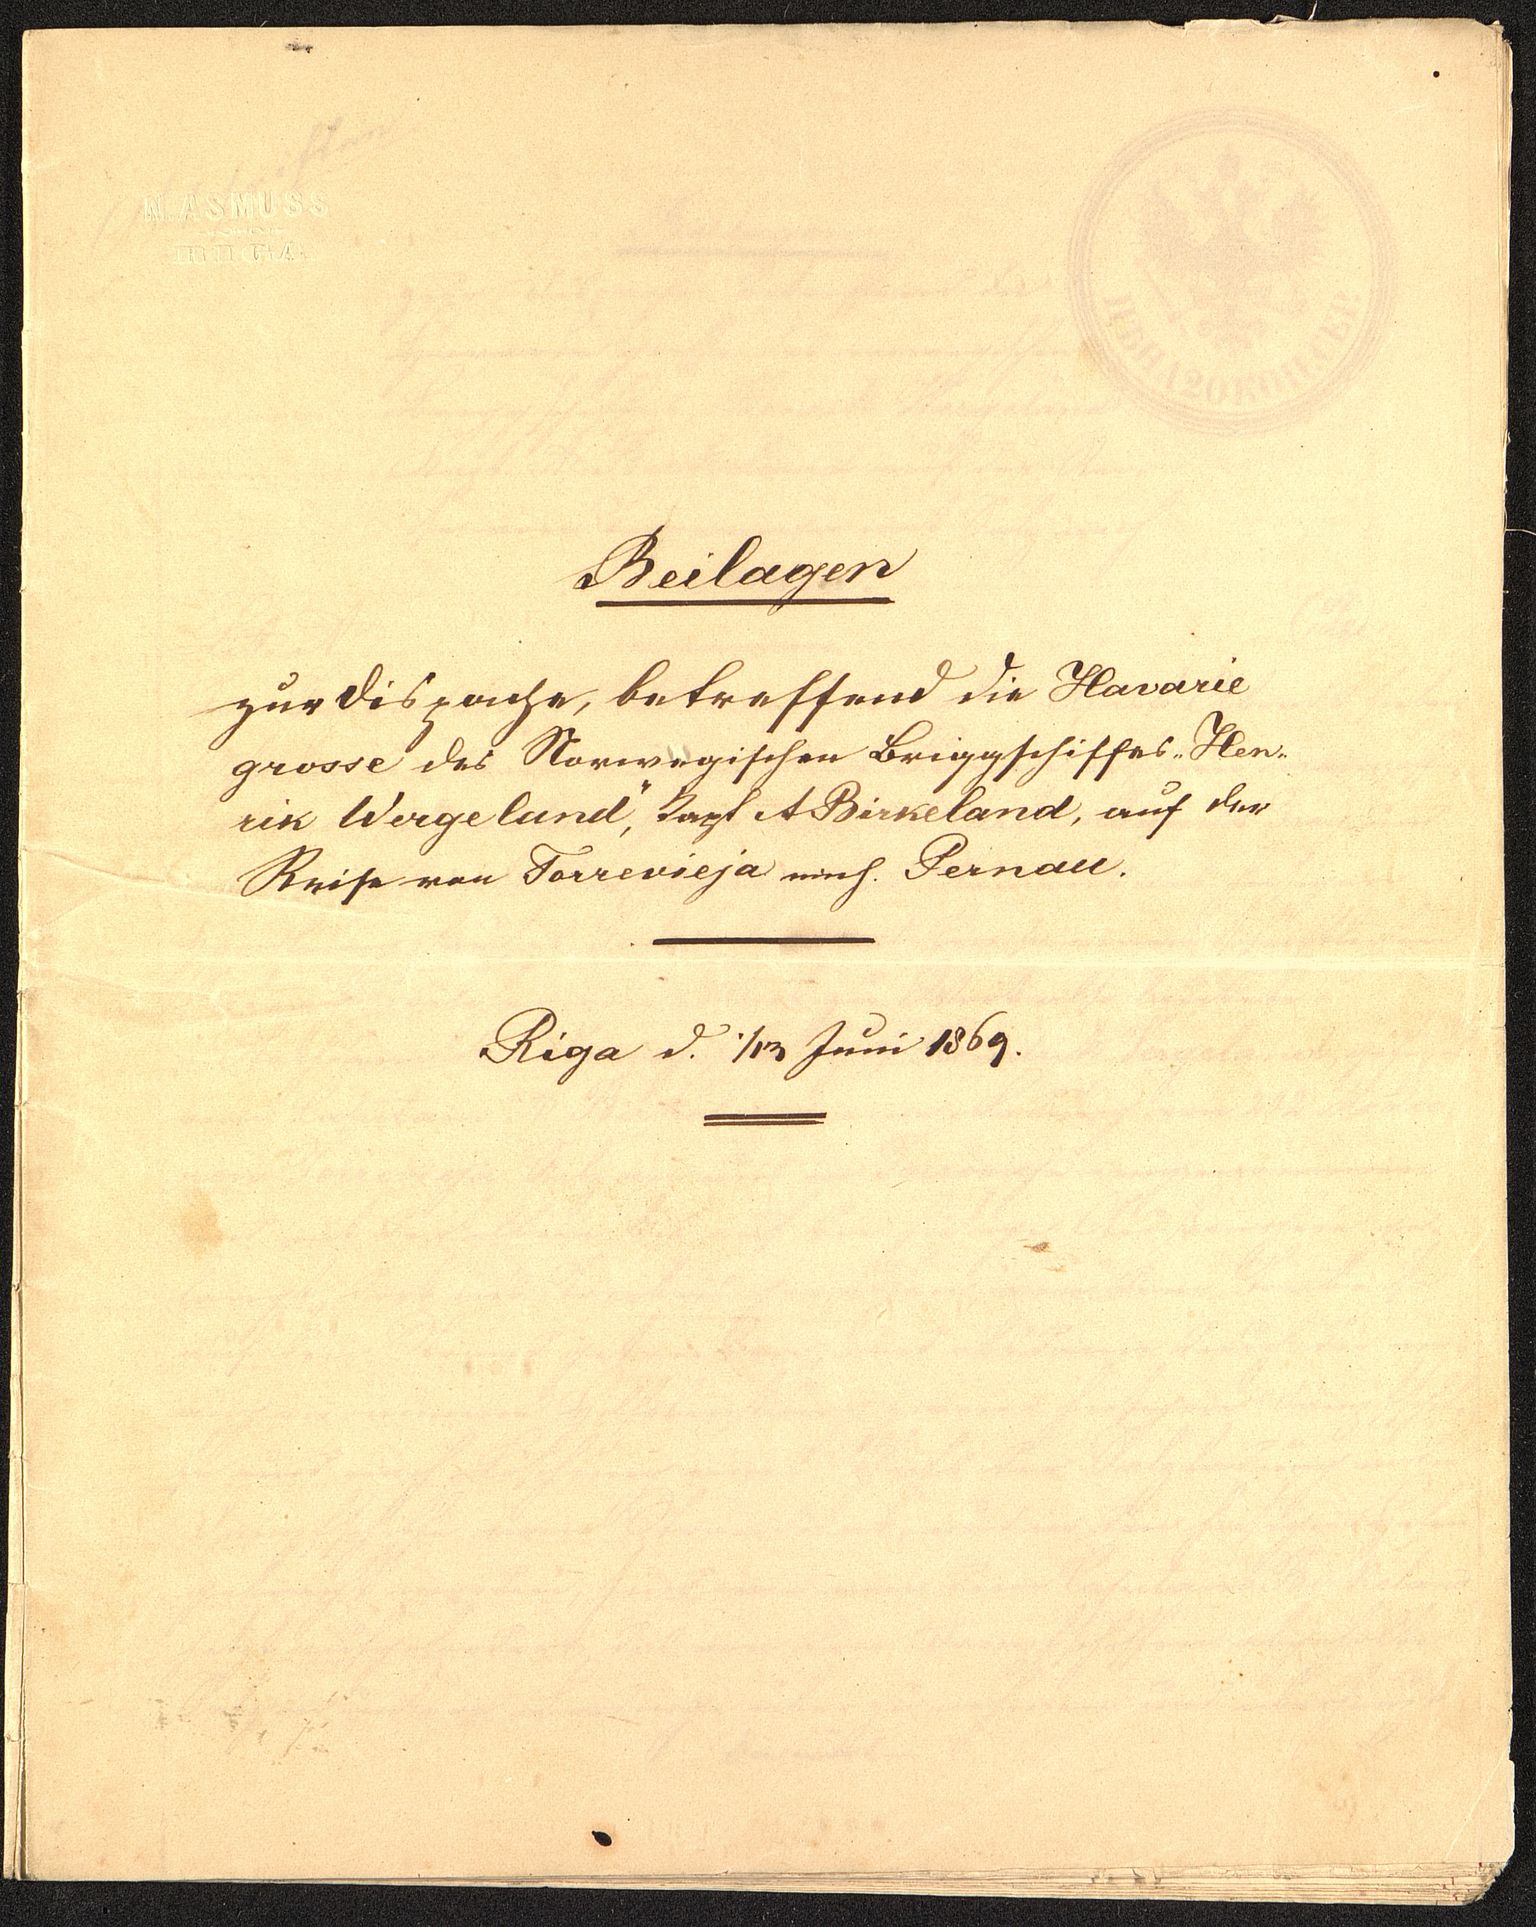 N. ASMUSS
RIGA
ЦѢНА 20 КОПѢЕКЪ
Beilagen
zur Dispache, betreffend die Havarie
grosse des Norwegischen Briggschiffes „Hen-
rik Wergeland", Capt A Birkeland, auf der
Reise von Torrevieja nach Pernau.
Riga d. 1/13 Juni 1869.